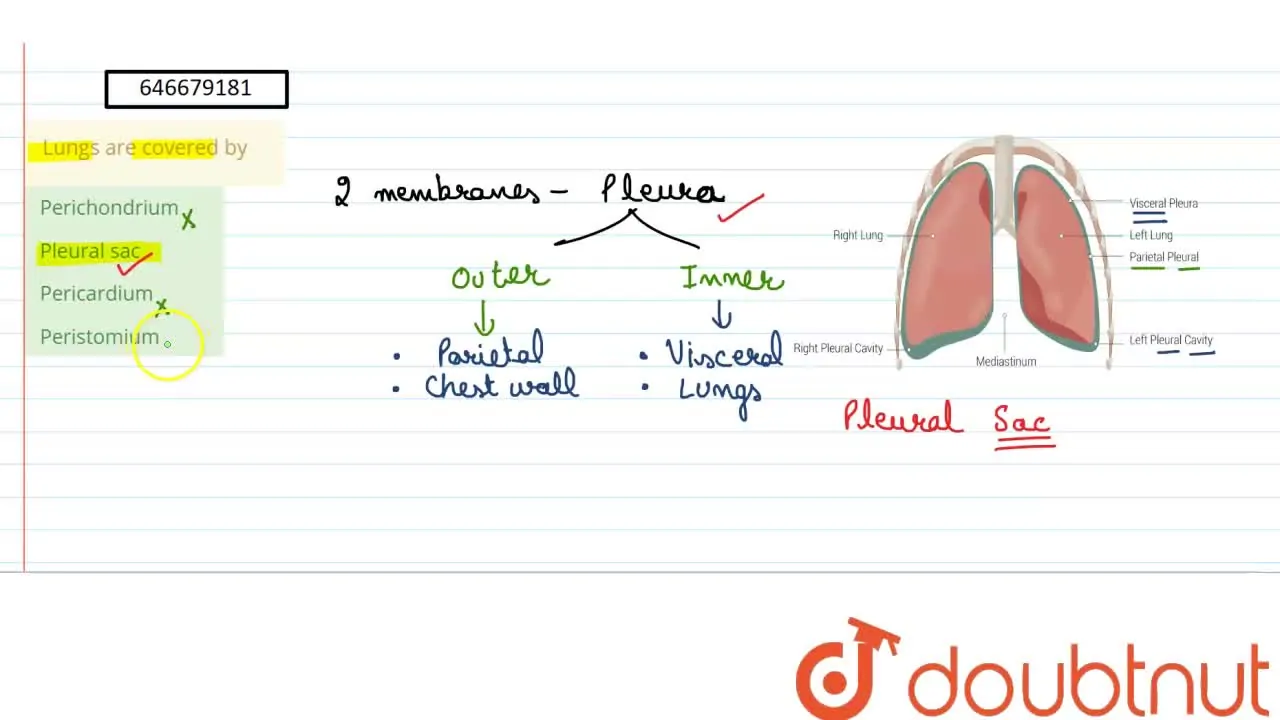 646679181
Lungs are covered by
Perichondrium x
Pleural sac
Pericardium x
Peristomium
2 membranes - Pleura
Outer
Inner
• Parietal
• Chest wall
• Visceral
• Lungs
Right Lung
Right Pleural Cavity
Mediastinum
Visceral Pleura
Left Lung
Parietal Pleural
Left Pleural Cavity
Pleural Sac
doubtnut